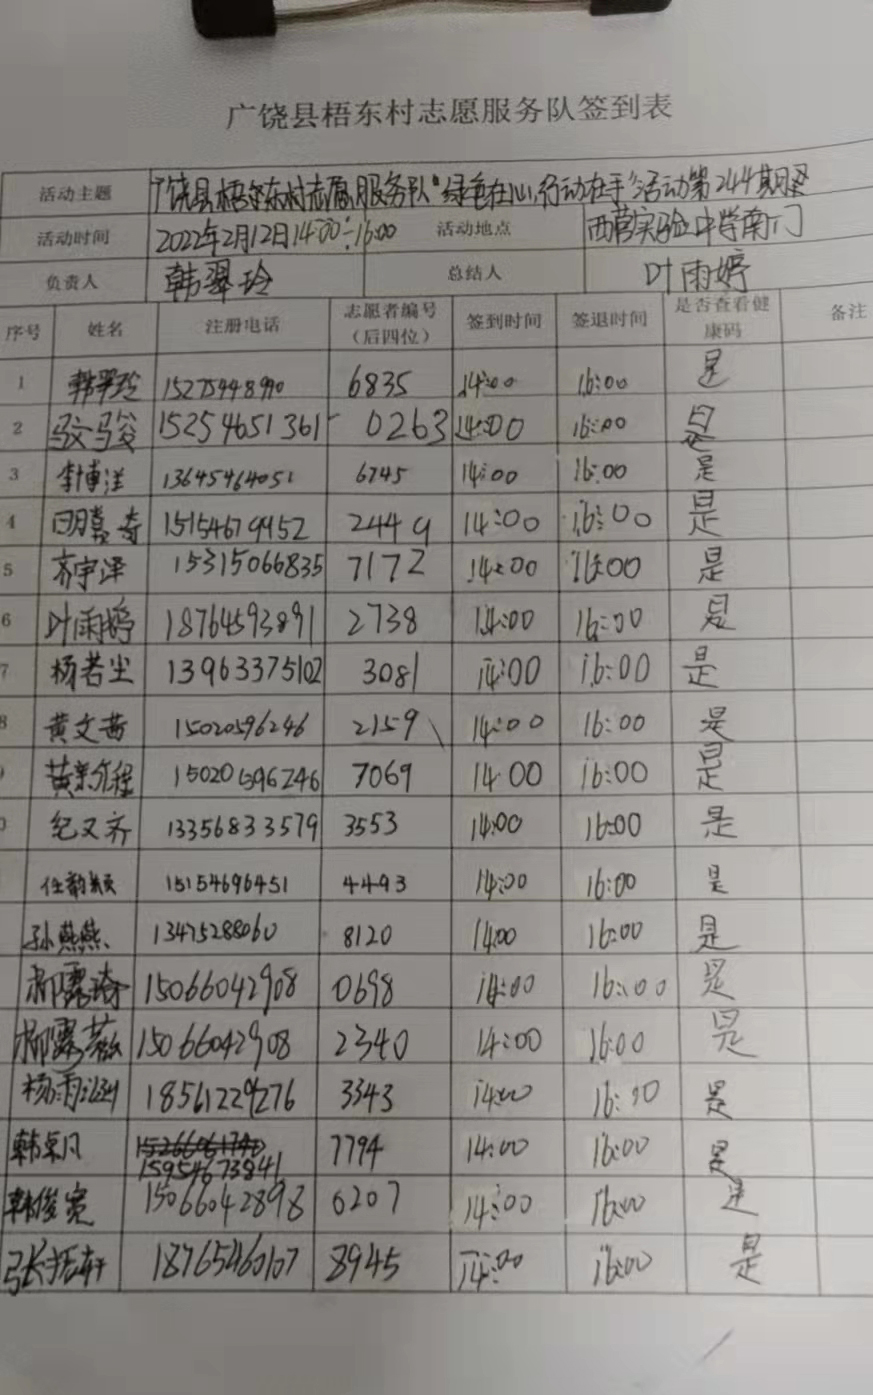 广饶县梧东村志愿服务队签到表
活动主题 广饶县梧东村志愿服务队"绿色在心,行动在手"活动第244期
活动时间 2022年2月12日14:00-16:00 活动地点 西营实验中学南门
负责人 韩翠玲 总结人 叶雨婷
序号 姓名 注册电话 志愿者编号（后四位） 签到时间 签退时间 是否查看健康码 备注
1 韩翠玲 15275448990 6835 14:00 16:00 是
2 15254651361 0263 14:00 16:00 是
3 李博洋 13645464051 6745 14:00 16:00 是
4 15154679952 2449 14:00 16:00 是
5 齐宇泽 15315066835 7172 14:00 16:00 是
6 叶雨婷 18764593891 2738 14:00 16:00 是
7 杨若尘 13963375102 3081 14:00 16:00 是
8 黄文茜 15020596246 2159 14:00 16:00 是
黄 程 15020596246 7069 14:00 16:00 是
纪又齐 13356833579 3553 14:00 16:00 是
任韵颖 15154696451 4493 14:00 16:00 是
孙燕燕 13475288060 8120 14:00 16:00 是
15066042908 0698 14:00 16:00 是
15066042908 2340 14:00 16:00 是
杨雨 18561229276 3343 14:00 16:00 是
韩卓凡 15954673841 7794 14:00 16:00 是
韩俊宽 15066042898 6207 14:00 16:00 是
张 轩 18765460107 8945 14:00 16:00 是